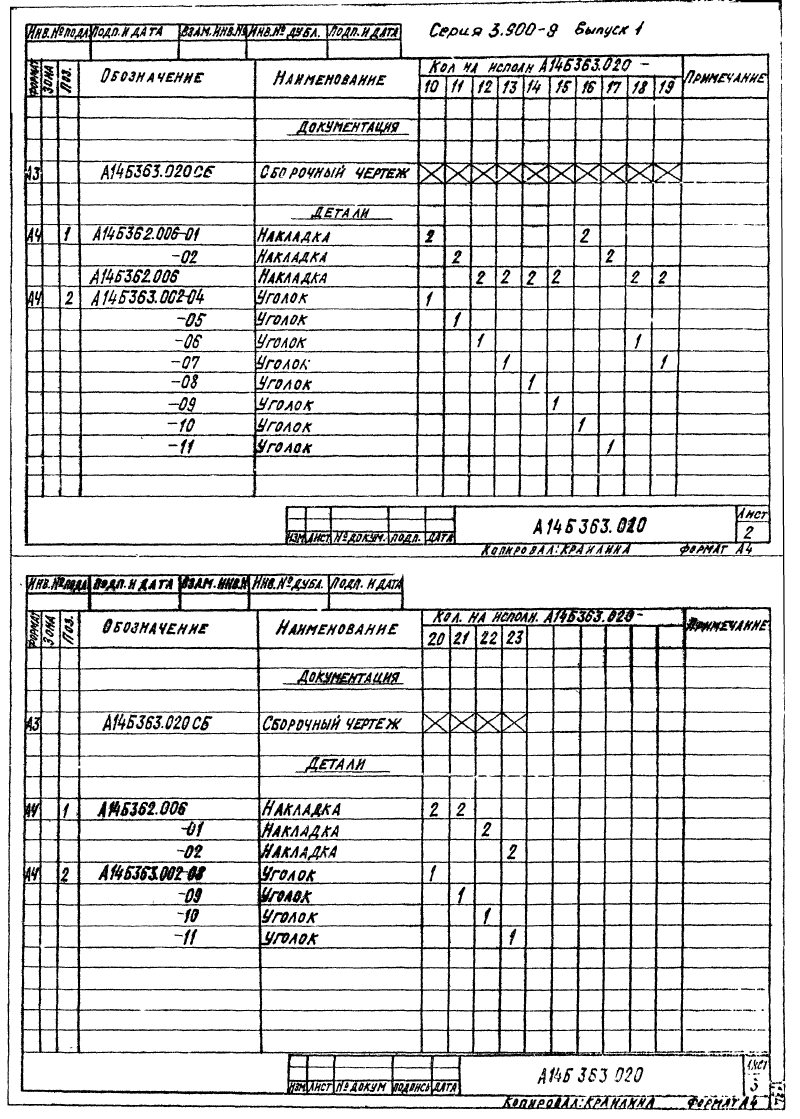 Инв.№подл Подп. и дата Взам. инв.№ Инв.№ дубл. Подп. и дата Серия 3.900-9 Выпуск 1
Формат Зона Поз. Обозначение Наименование Кол на исполн А14Б363.020 - Примечание
10 11 12 13 14 15 16 17 18 19
Документация
А3 А14Б363.020СБ Сборочный чертеж
Детали
А4 1 А14Б362.006-01 Накладка 2 2
-02 Накладка 2 2
А14Б362.006 Накладка 2 2 2 2 2 2
А4 2 А14Б363.002-04 Уголок 1
-05 Уголок 1
-06 Уголок 1 1
-07 Уголок 1 1
-08 Уголок 1
-09 Уголок 1
-10 Уголок 1
-11 Уголок 1
Изм Лист № докум. Подп. Дата А14Б363.020 Лист 2
Копировал: Крайнина Формат А4
Инв.№подл Подп. и дата Взам. инв.№ Инв.№ дубл. Подп. и дата
Формат Зона Поз. Обозначение Наименование Кол. на исполн. А14Б363.020- Примечание
20 21 22 23
Документация
А3 А14Б363.020 СБ Сборочный чертеж
Детали
А4 1 А14Б362.006 Накладка 2 2
-01 Накладка 2
-02 Накладка 2
А4 2 А14Б363.002-08 Уголок 1
-09 Уголок 1
-10 Уголок 1
-11 Уголок 1
Изм Лист № докум Подпись Дата А14Б 363 020 Лист 3
Копировал: Крайнина Формат А4